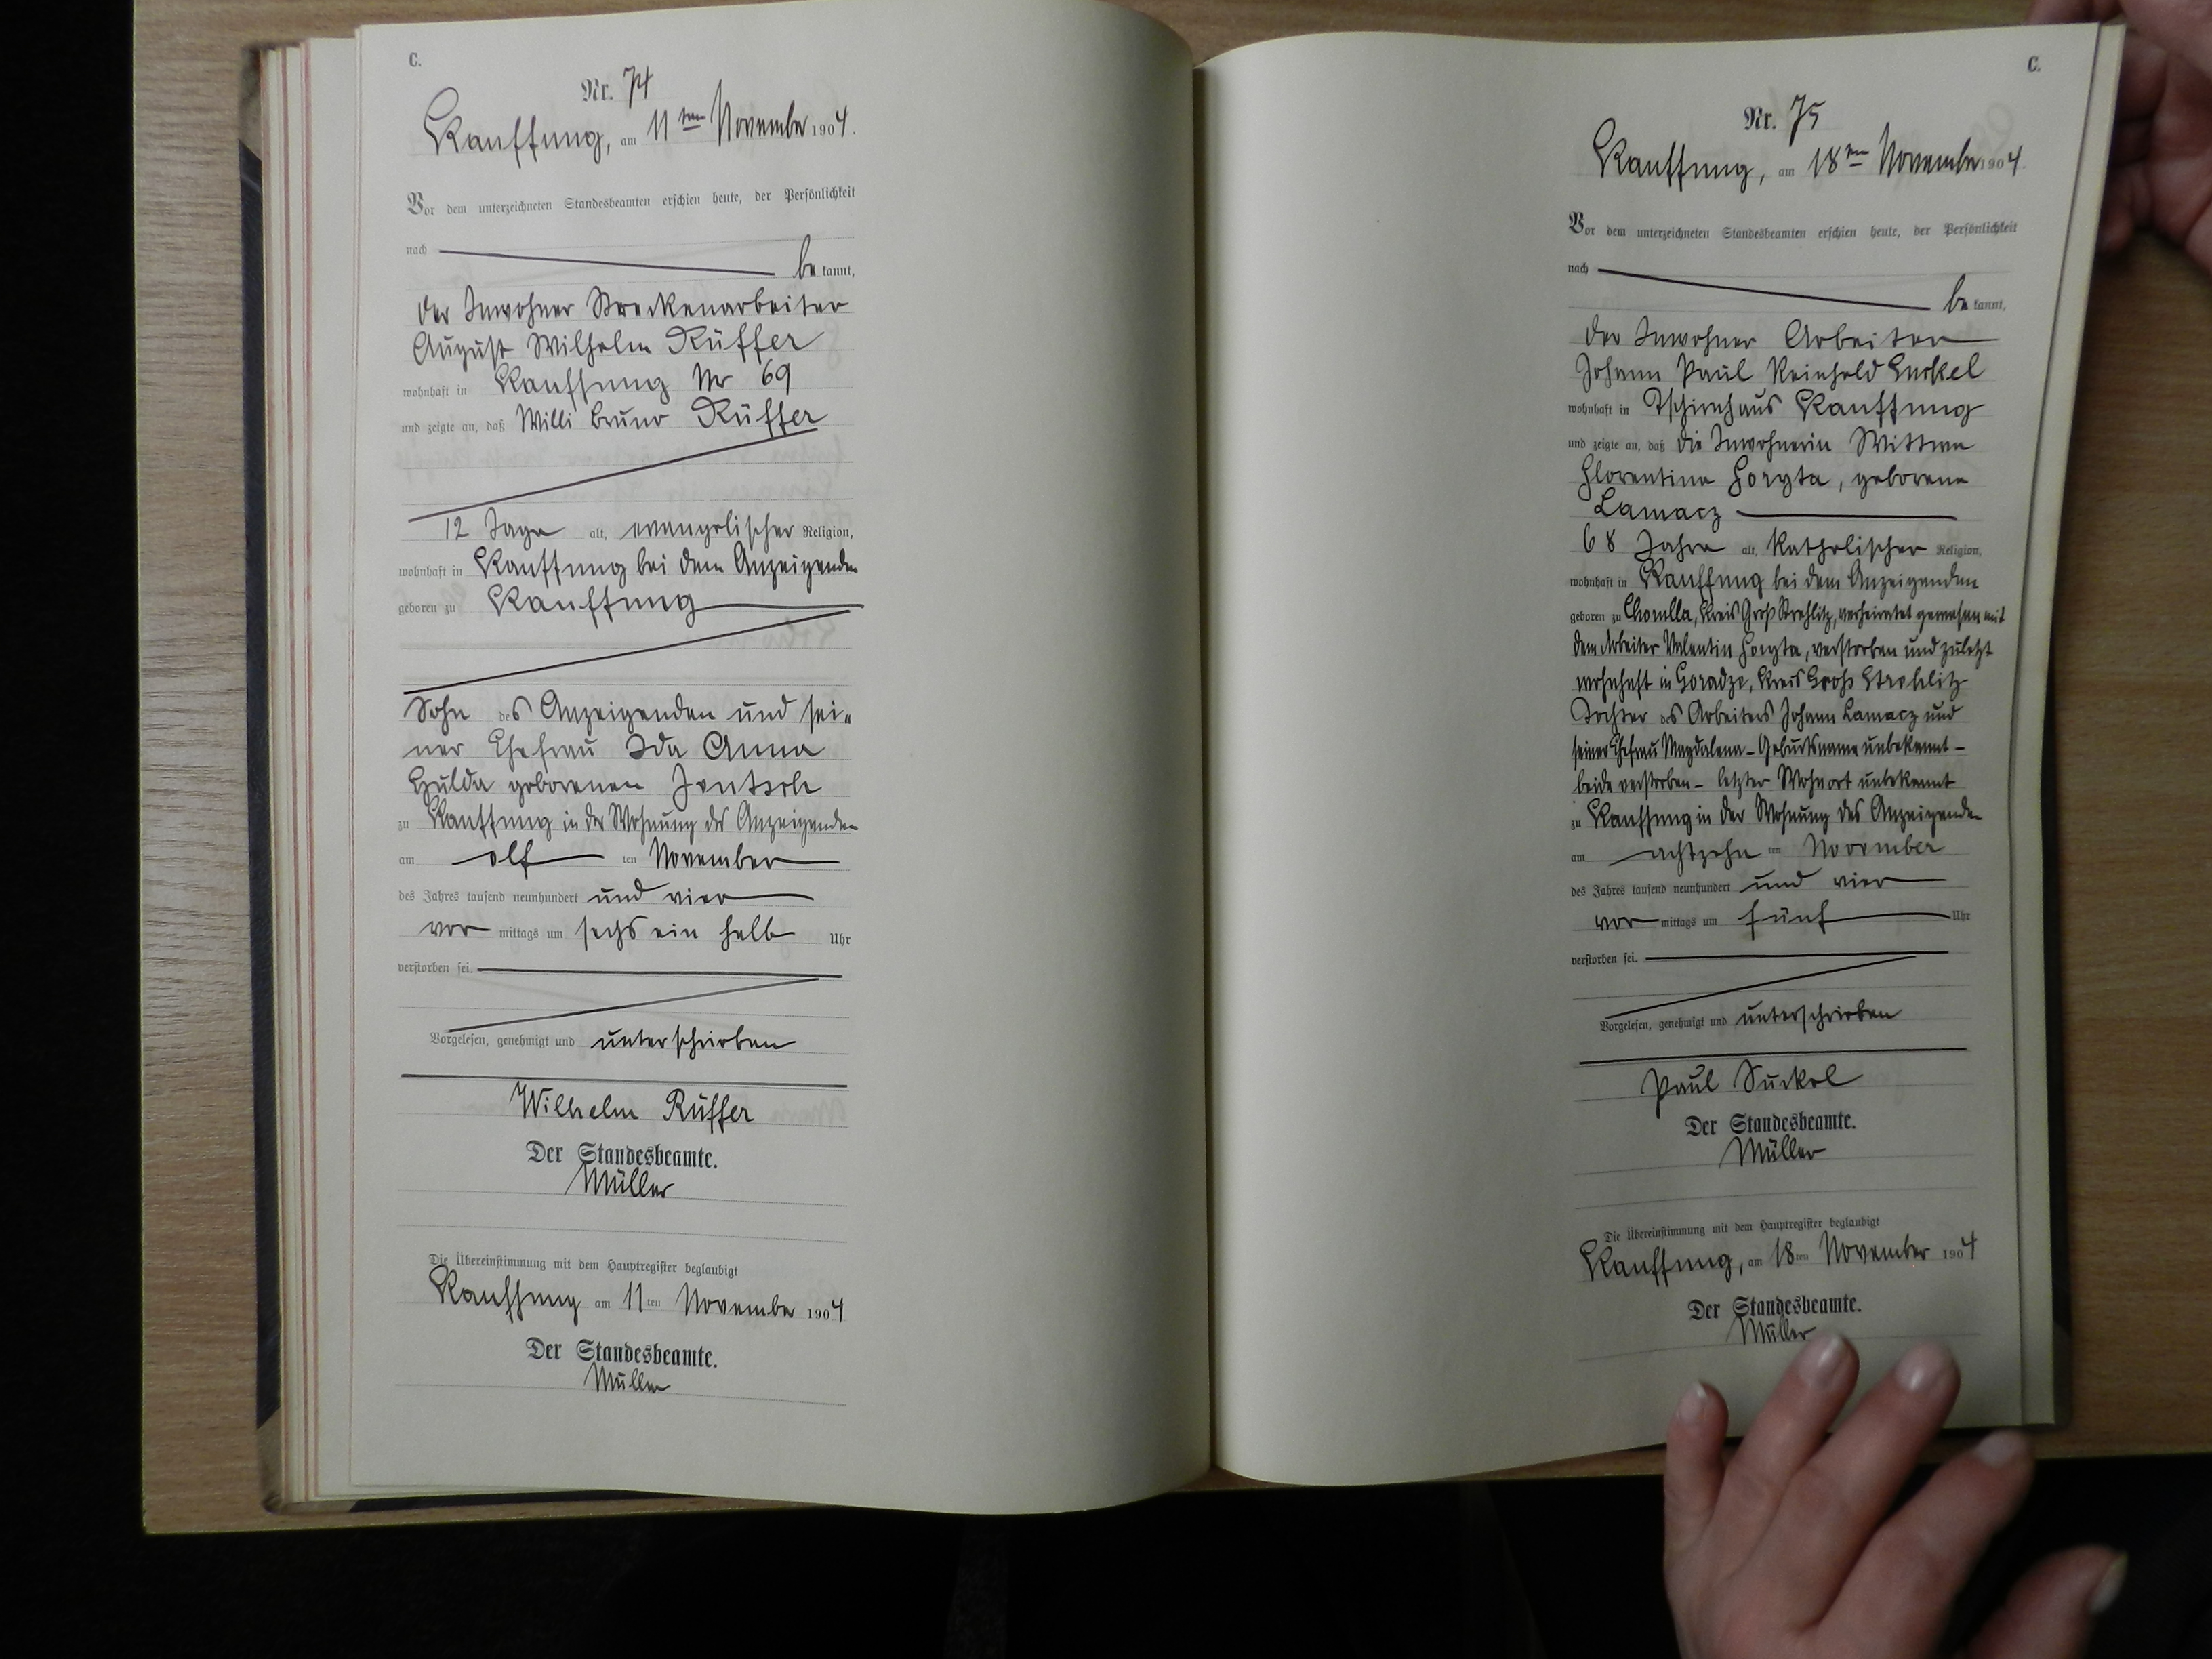 C.
Nr. 74
Kauffung, am 11ten November 1904.
Vor dem unterzeichneten Standesbeamten erschien heute, der Persönlichkeit
nach bekannt,
der Inwohner Streckenarbeiter
August Wilhelm Rüffer
wohnhaft in Kauffung Nr 69
und zeigte an, daß Willi Bruno Rüffer
12 Tage alt, evangelischer Religion,
wohnhaft in Kauffung bei dem Anzeigenden
geboren zu Kauffung
Sohn des Anzeigenden und sei-
ner Ehefrau Ida Anna
Hulda geborenen Jentsch
zu Kauffung in der Wohnung des Anzeigenden
am elf ten November
des Jahres tausend neunhundert und vier
vor mittags um sechs ein halb Uhr
verstorben sei.
Vorgelesen, genehmigt und unterschrieben
Wilhelm Rüffer
Der Standesbeamte.
Müller
Die Übereinstimmung mit dem Hauptregister beglaubigt
Kauffung am 11ten November 1904
Der Standesbeamte.
Müller
C.
Nr. 75
Kauffung, am 18ten November 1904.
Vor dem unterzeichneten Standesbeamten erschien heute, der Persönlichkeit
nach bekannt,
der Inwohner Arbeiter
Johann Paul Reinhold Suckel
wohnhaft in Tschirnhaus Kauffung
und zeigte an, daß die Inwohnerin Wittwe
Florentine geborene
Lamacz
68 Jahre alt, katholischer Religion,
wohnhaft in Kauffung bei dem Anzeigenden
geboren zu Kreis Groß Strehlitz, verheiratet gewesen mit
dem Arbeiter Valentin verstorben und zuletzt
wohnhaft in Goradze, Kreis Groß Strehlitz
Tochter des Arbeiters Johann Lamacz und
seiner Ehefrau Magdalena - Geburtsname unbekannt -
beide verstorben - letzter Wohnort unbekannt
zu Kauffung in der Wohnung des Anzeigenden
am achtzehn ten November
des Jahres tausend neunhundert und vier
vor mittags um fünf Uhr
verstorben sei.
Vorgelesen, genehmigt und unterschrieben
Paul Suckel
Der Standesbeamte.
Müller
Die Übereinstimmung mit dem Hauptregister beglaubigt
Kauffung, am 18ten November 1904
Der Standesbeamte.
Müller